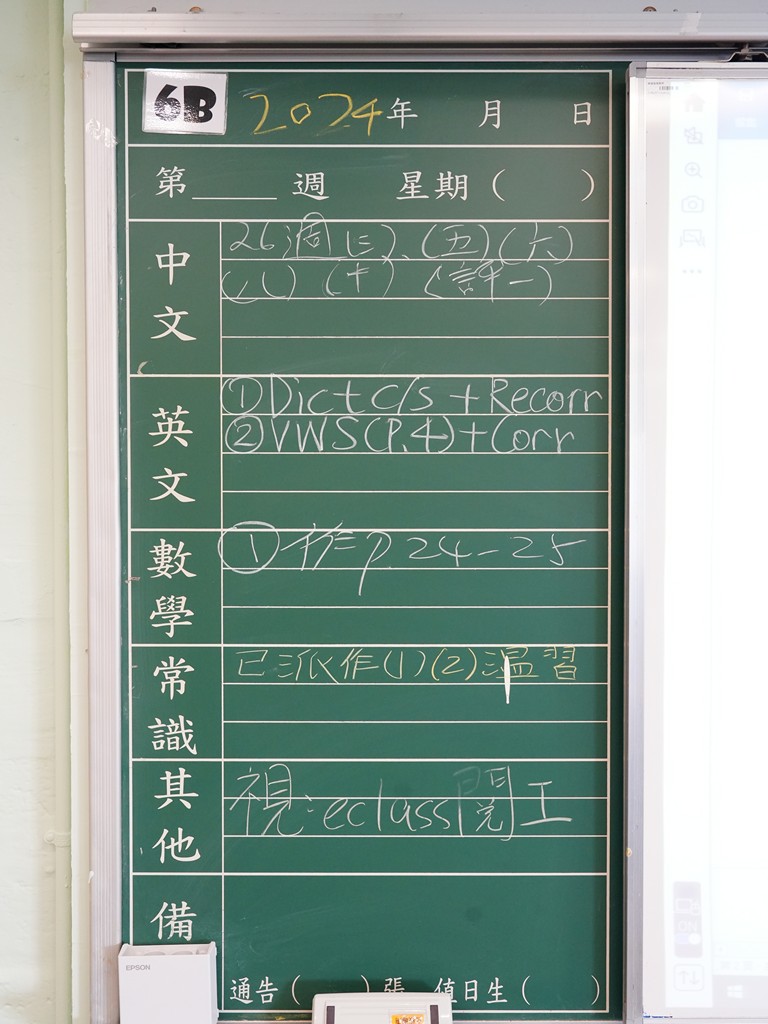 6B 2024年 月 日
第____週 星期( )
中文
26週(三)、(五)(六)
(八)(十)(評一)
英文
①Dict c/s + Recorr
②VWS(P.4)+Corr
數學
①作p.24-25
常識
已派作(1)(2)溫習
其他
視:eclass閱工
備
通告( )張 值日生( )
EPSON